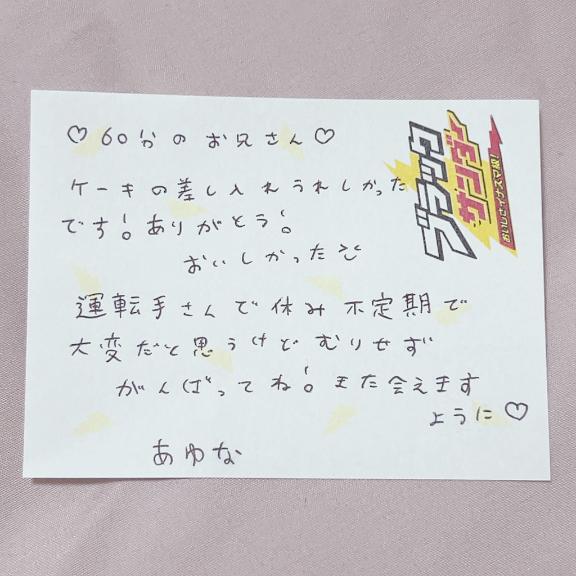 ♡60分のお兄さん♡
ケーキの差し入れうれしかった
です!ありがとう!
おいしかった
運転手さんで休み不定期で
大変だと思うけどむりせず
がんばってね!また会えます
ように♡
あゆな
ブラック
サンダー
おいしさイナズマ級!